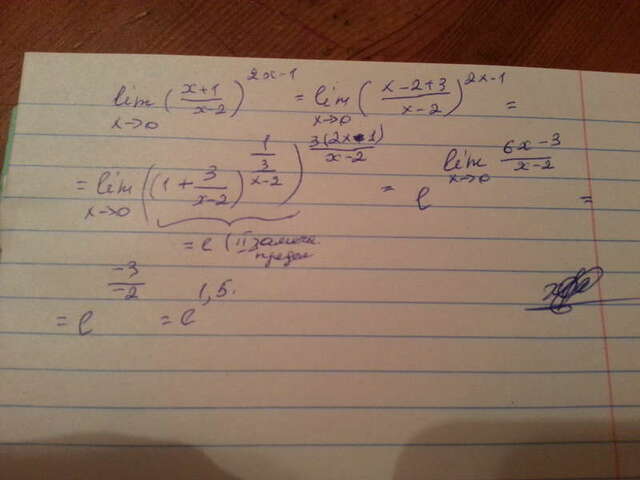 lim x→0 (x+1 / x-2)^2x-1 = lim x→0 (x-2+3 / x-2)^2x-1 =
= lim x→0 ((1 + 3/x-2)^1/(3/x-2))^3(2x-1)/x-2 = e^lim x→0 6x-3/x-2 =
= e (II замеч.
предел
= e^-3/-2 = e^1,5.